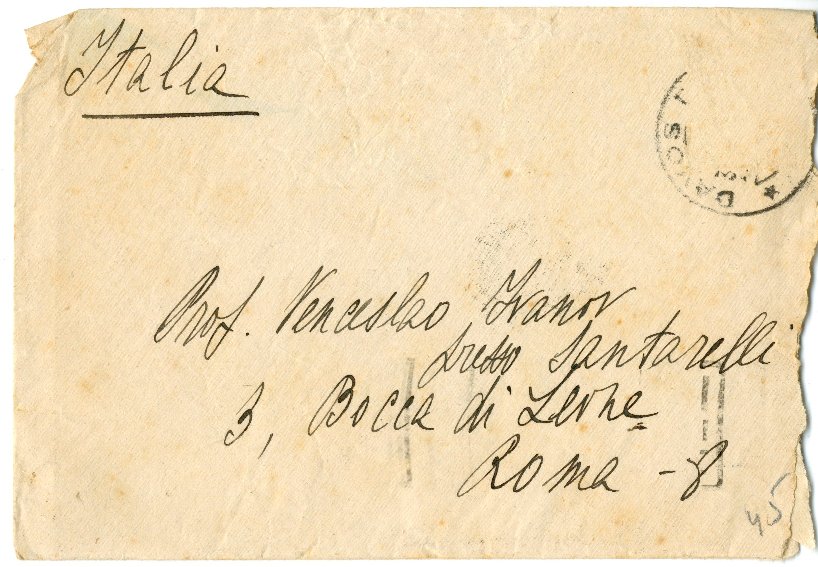 Italia
DAVOS
Prof. Venceslao Ivanov
presso Santarelli
3, Bocca di Leone
Roma - 8
45